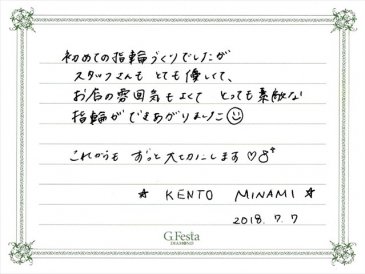 初めての指輪づくりでしたが
スタッフさんも とても優しくて、
お店の雰囲気もよくて とっても素敵な
指輪ができあがりました☺
これからも ずっと大切にします♡
☆ KENTO MINAMI ☆
2018. 7. 7
G.Festa
DIAMOND